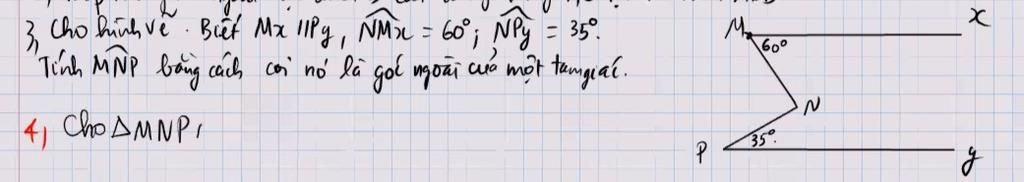 3, Cho hình vẽ. Biết Mx //Py, NMx = 60°; NPy = 35°.
Tính MNP bằng cách coi nó là góc ngoài của một tam giác.
4, Cho ΔMNP,
M
x
60°
N
P
35°.
y